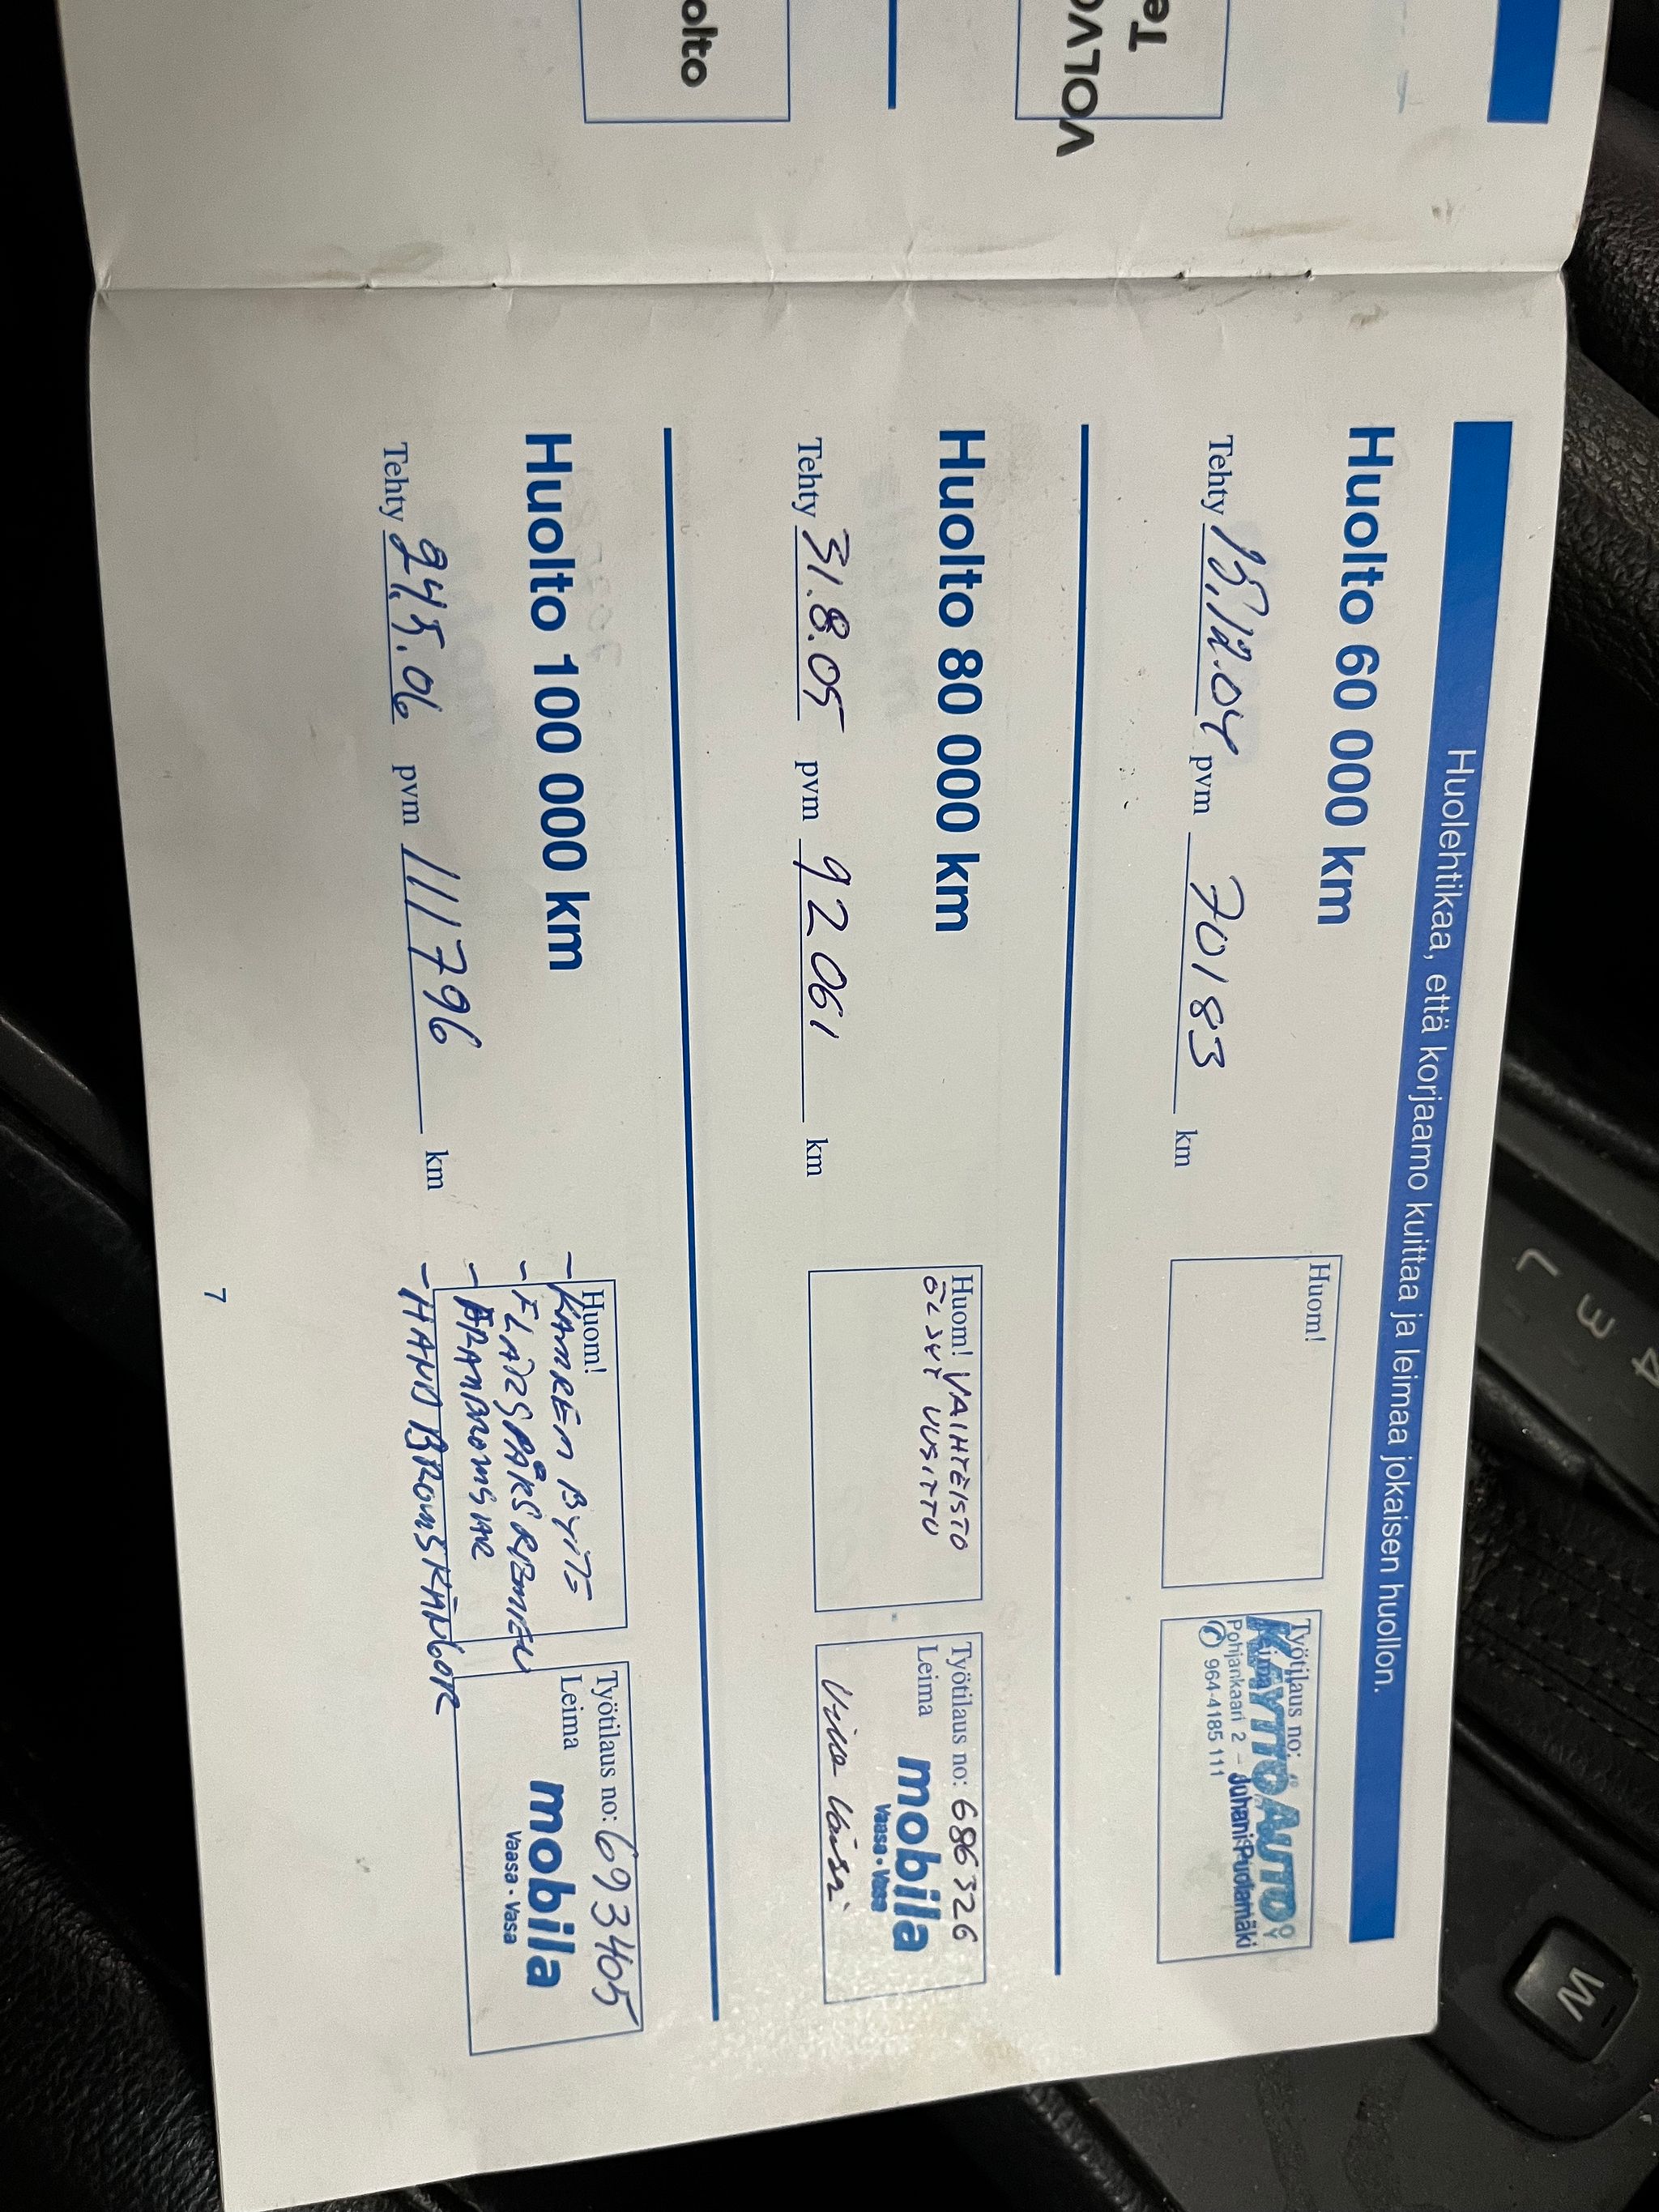 olto
Te
VOLVO
Huolehtikaa, että korjaamo kuittaa ja leimaa jokaisen huollon.
Huolto 60 000 km
Tehty 15.12.04 pvm 70183 km
Huom!
Työtilaus no:
Leima
KÄYTTÖAUTO OY
Pohjankaari 2 - Juhani Puolamäki
964-4185 111
Huolto 80 000 km
Tehty 31.8.05 pvm 92061 km
Huom! VAIHTEISTO
ÖLJYT UUSITTU
Työtilaus no: 686326
Leima
mobila
Vaasa • Vasa
Huolto 100 000 km
Tehty 24.5.06 pvm 111796 km
Huom!
- KAMREM BYTE
- FLÄKSPÅRSREMEN
- FRAMBROMSAR
- HANDBROMSKÄNGOR
Työtilaus no: 693405
Leima
mobila
Vaasa • Vasa
7
L
3
4
W